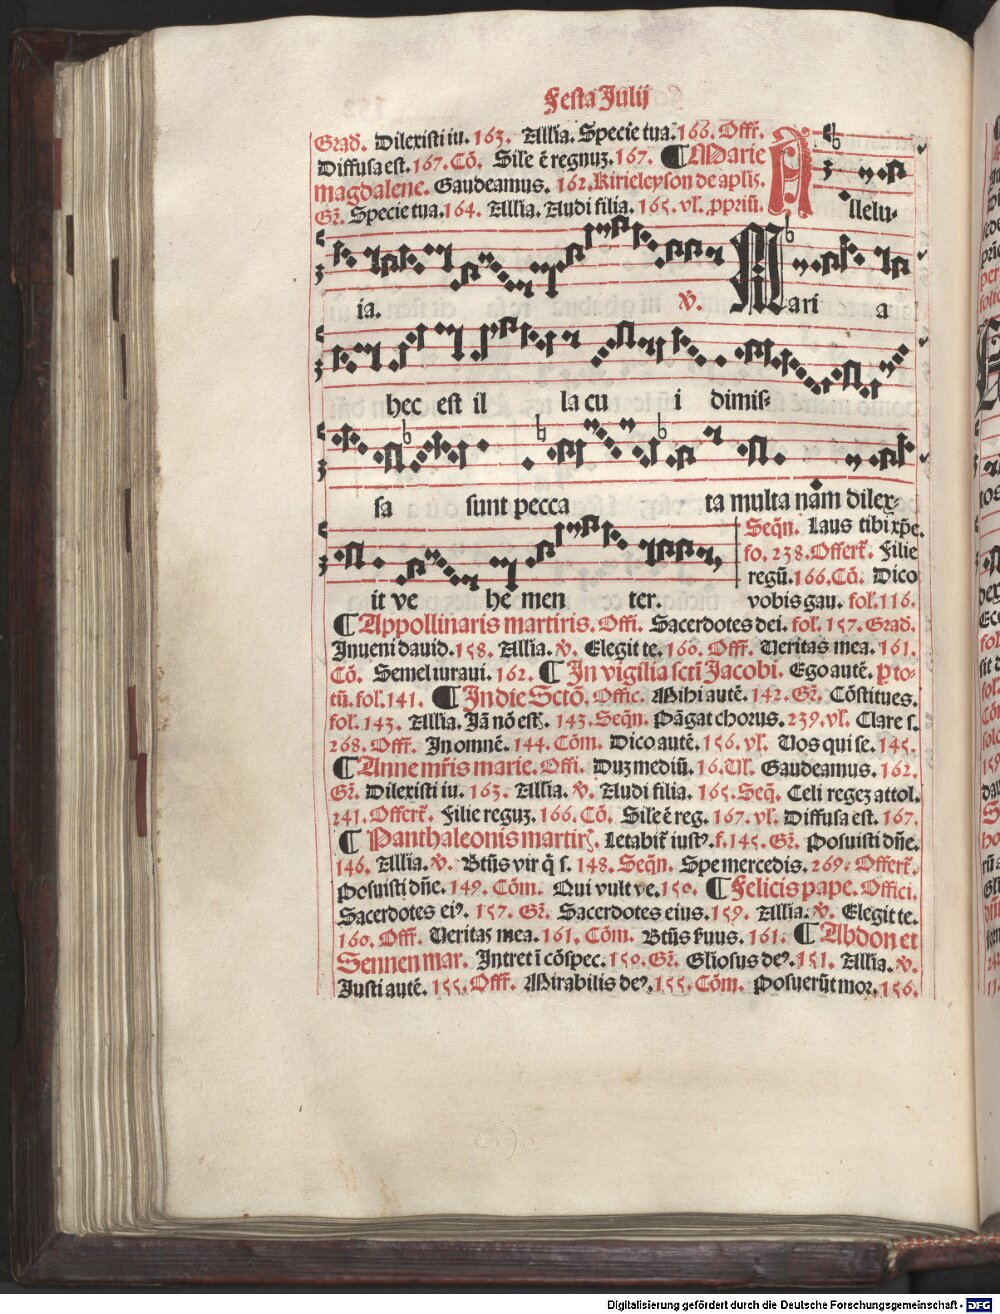 Festa Julij
Grad. Dilexisti iu. 163. Allia. Specie tua. 166. Offr̄.
Diffusa est. 167. Cō. Sile ē regnuꝫ. 167. ¶ Marie
magdalene. Gaudeamus. 162. Kirieleyson de aplis.
Gr̄. Specie tua. 164. Allia. Audi filia. 165. vl. ꝓpriū.
Allelu-
ia. v̄. Mari a
hec est il la cu i dimis-
sa sunt pecca ta multa nam dilex-
it ve he men ter.
Seq̄n. Laus tibi xp̄e.
fo. 238. Offert̄. Filie
regū. 166. Cō. Dico
vobis gau. fol. 116.
¶ Appollinaris martiris. Offi. Sacerdotes dei. fol. 157. Grad.
Inueni dauid. 158. Allia. v̄. Elegit te. 160. Offr̄. Ueritas mea. 161.
Cō. Semel iuraui. 162. ¶ In vigilia scti Jacobi. Ego autē. ꝑ to-
tū. fol. 141. ¶ In die Sctō. Offic. Mihi autē. 142. Gr̄. Cōstitues.
fol. 143. Allia. Jā nō est. 143. Seq̄n. Pāgat chorus. 239. vl. Clare s.
268. Offr̄. In omnē. 144. Cōm. Dico autē. 156. vl. Uos qui se. 145.
¶ Anne mr̄is marie. Offi. Duꝫ mediū. 16. Ul. Gaudeamus. 162.
Gr̄. Dilexisti iu. 163. Allia. v̄. Audi filia. 165. Seq̄. Celi regeꝫ attol.
241. Offert̄. Filie reguꝫ. 166. Cō. Sile ē reg. 167. vl. Diffusa est. 167.
¶ Panthaleonis martir̄. Letabit̄ iustꝰ. f. 145. Gr̄. Posuisti dn̄e.
146. Allia. v̄. Btūs vir q̄ s. 148. Seq̄n. Spe mercedis. 269. Offert̄.
Posuisti dn̄e. 149. Cōm. Qui vult ve. 150. ¶ Felicis pape. Offici.
Sacerdotes eiꝰ. 157. Gr̄. Sacerdotes eius. 159. Allia. v̄. Elegit te.
160. Offr̄. Ueritas mea. 161. Cōm. Btūs ẜuus. 161. ¶ Abdon et
Sennen mar. Intret i cōspec. 150. Gr̄. Gliosus deꝰ. 151. Allia. v̄.
Justi autē. 155. Offr̄. Mirabilis deꝰ. 155. Cōm. Posuerūt mor. 156.
Digitalisierung gefördert durch die Deutsche Forschungsgemeinschaft - DFG